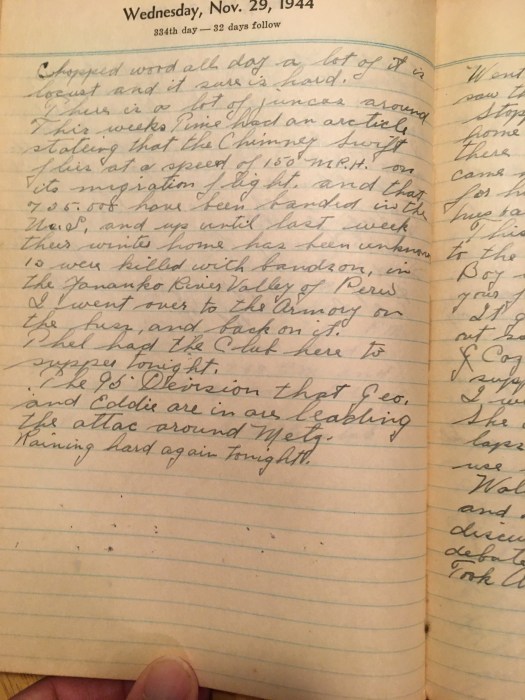 Wednesday, Nov. 29, 1944
334th day — 32 days follow
Chopped wood all day a lot of it is
locust and it sure is hard.
There is a lot of juncos around
This weeks Time had an article
stateing that the Chimney Swift
flies at a speed of 150 M.P.H. on
its migration flight. and that
have been banded in the
U.S. and up until last week
their winter home has been unknown
13 were killed with bands on, in
the River Valley of Peru
I went over to the Armory on
the buss, and back on it.
Thel had the Club here to
supper tonight.
The 95 Devision that Geo.
and Eddie are in are leading
the attac around Metz.
Raining hard again tonight.
Went
saw th
Stop
home
there
came
for h
This
to the
Boy
your
It
out
supp
I we
She
laps
use
Wal
and
discu
debate
Took